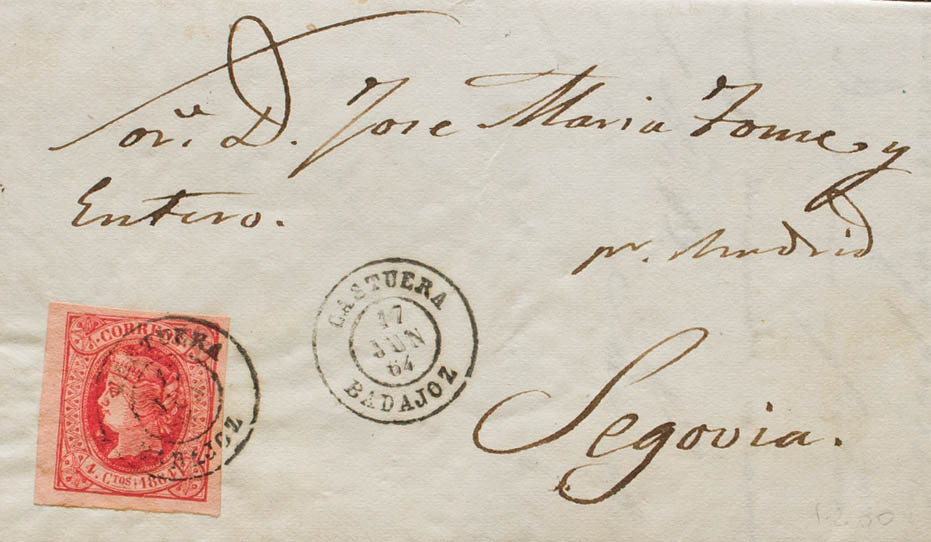 Sor. D. Jose Maria Tome y
Entero.
pr. Madrid
CASTUERA
17
JUN
64
BADAJOZ
Segovia.
CORREOS
TUERA
4. CTOS 186
BADAJOZ